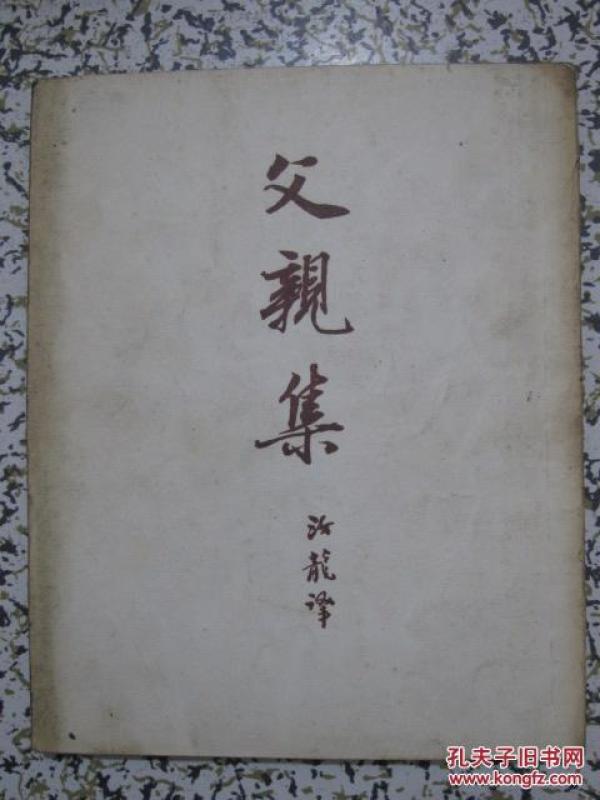 父親集
汝龍译
孔夫子旧书网
www.kongfz.com